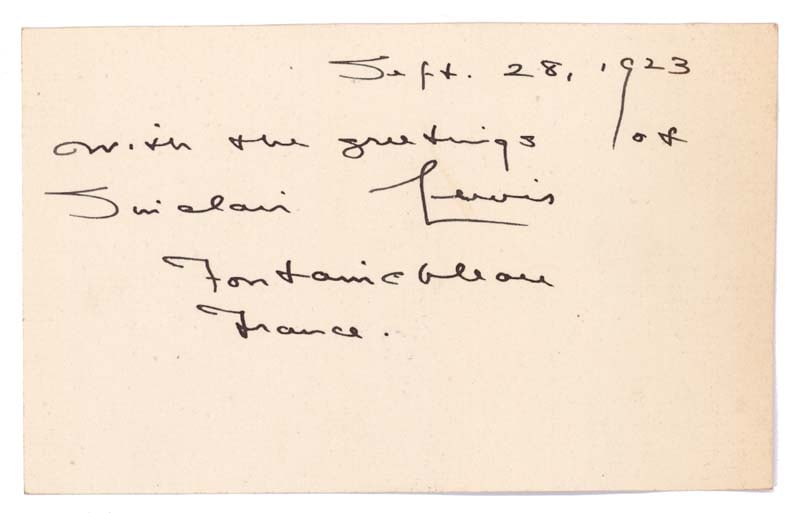 Sept. 28, 1923
with the greetings of
Sinclair Lewis
Fontainebleau
France.